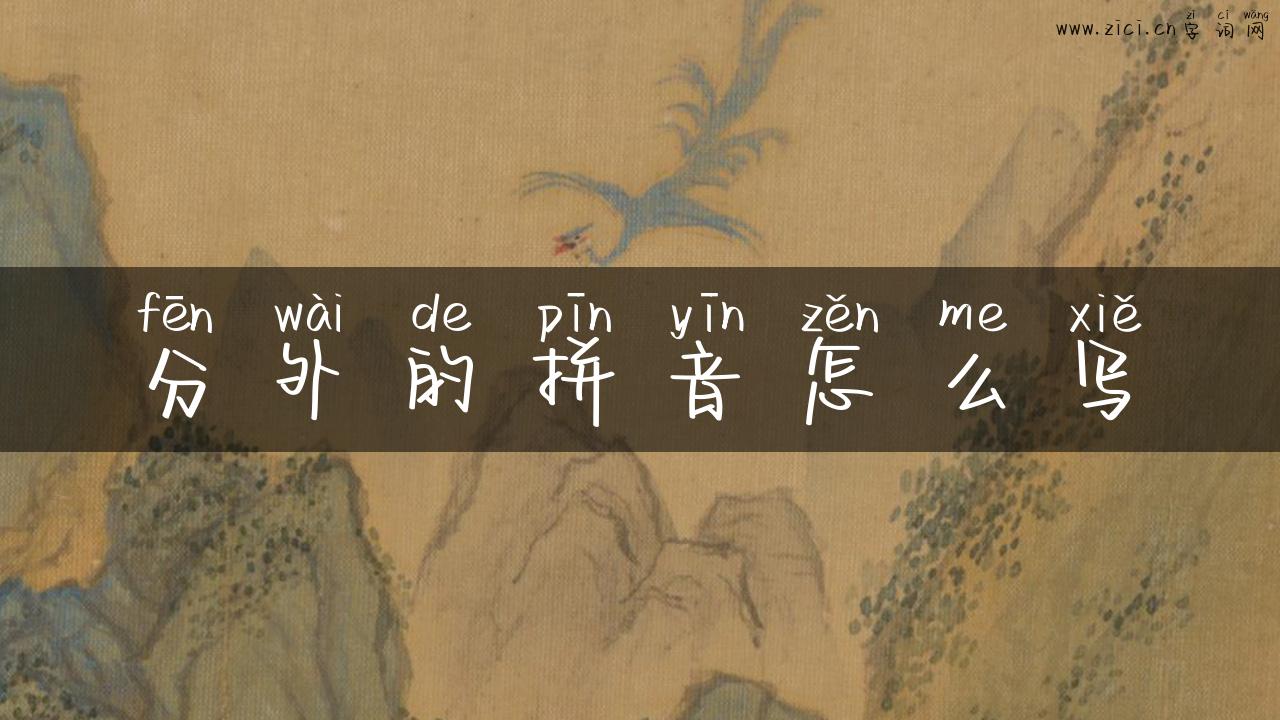 zì cí wǎng
www.zici.cn字词网
fēn wài de pīn yīn zěn me xiě
分外的拼音怎么写